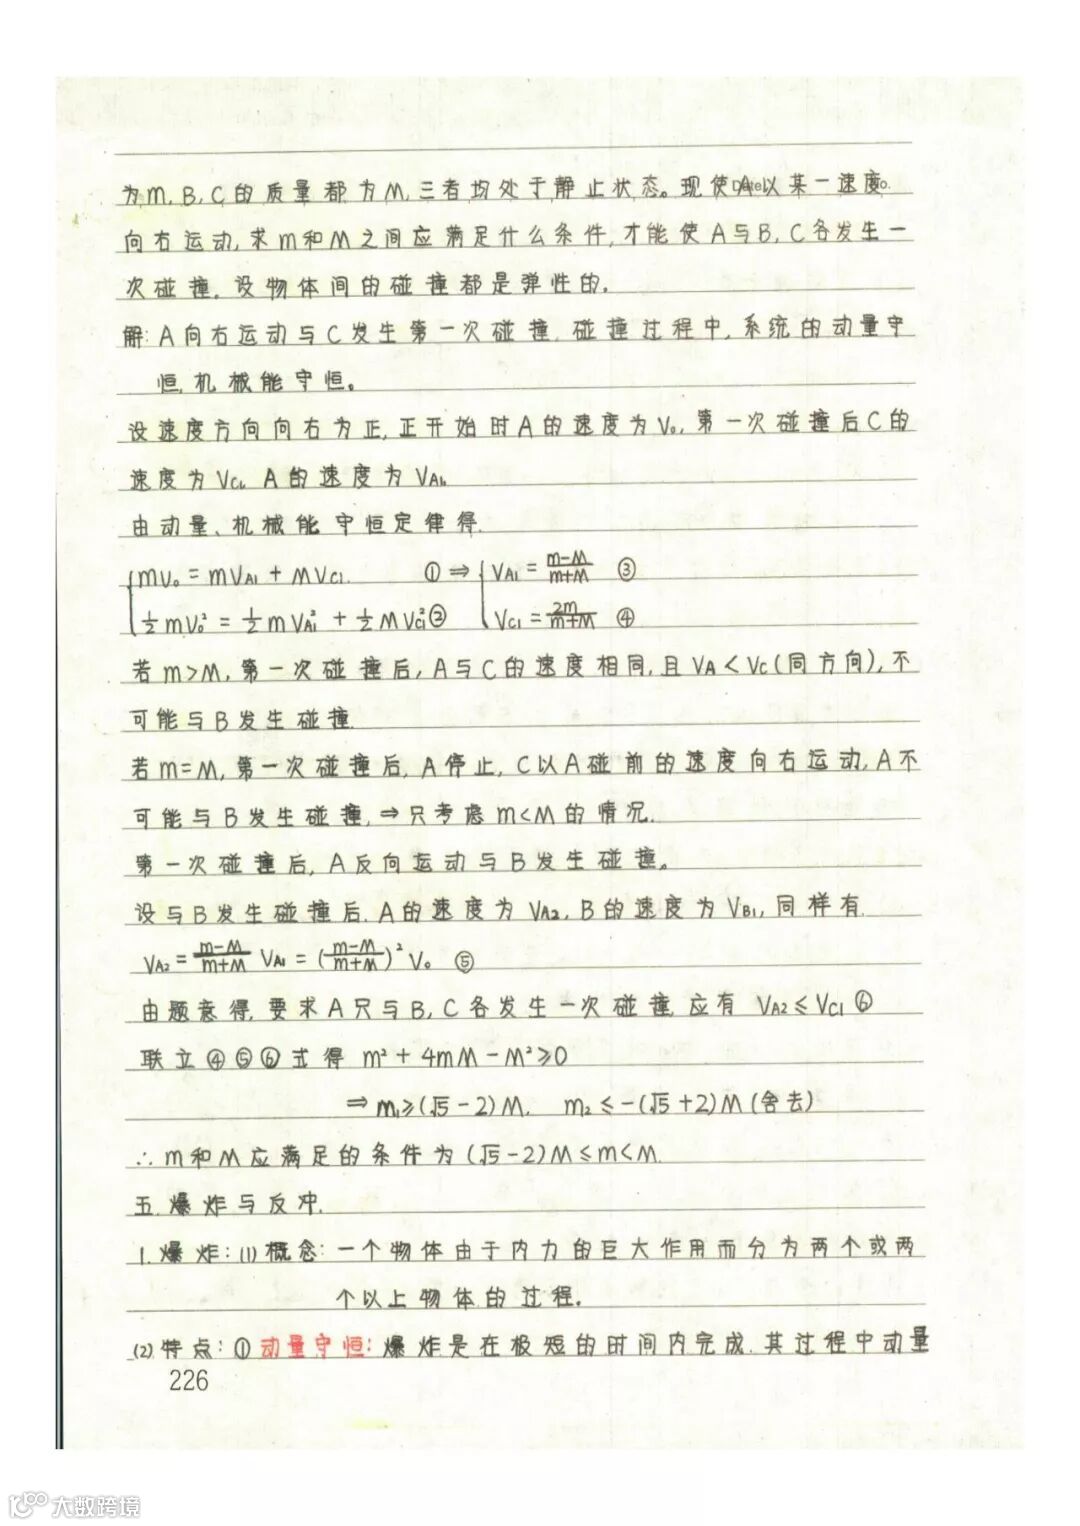 为m,B,C的质量都为M,三者均处于静止状态。现使A以某一速度
向右运动,求m和M之间应满足什么条件,才能使A与B,C各发生一
次碰撞。设物体间的碰撞都是弹性的。
解:A向右运动与C发生第一次碰撞.碰撞过程中,系统的动量守
恒,机械能守恒。
设速度方向向右为正,正开始时A的速度为V₀,第一次碰撞后C的
速度为Vc₁,A的速度为VA₁.
由动量、机械能守恒定律得.
mv₀=mVA₁+MVC₁. ① ⇒ VA₁=\frac{m-M}{m+M} ③
½mV₀²=½mVA₁²+½MVC₁² ② VC₁=\frac{2m}{m+M} ④
若m>M,第一次碰撞后,A与C的速度相同,且VA<VC(同方向),不
可能与B发生碰撞.
若m=M,第一次碰撞后,A停止,C以A碰前的速度向右运动,A不
可能与B发生碰撞,⇒只考虑m<M的情况.
第一次碰撞后,A反向运动与B发生碰撞。
设与B发生碰撞后.A的速度为VA₂,B的速度为VB₁,同样有.
VA₂=\frac{m-M}{m+M}VA₁=(\frac{m-M}{m+M})²V₀ ⑤
由题意得,要求A只与B,C各发生一次碰撞.应有 VA₂≤VC₁ ⑥
联立④⑤⑥式得 m²+4mM-M²≥0
⇒m₁≥(√5-2)M. m₂≤-(√5+2)M(舍去)
∴m和M应满足的条件为(√5-2)M≤m<M.
五.爆炸与反冲.
1.爆炸:(1)概念:一个物体由于内力的巨大作用而分为两个或两
个以上物体的过程.
(2)特点:①动量守恒:爆炸是在极短的时间内完成.其过程中动量
226
大数跨境